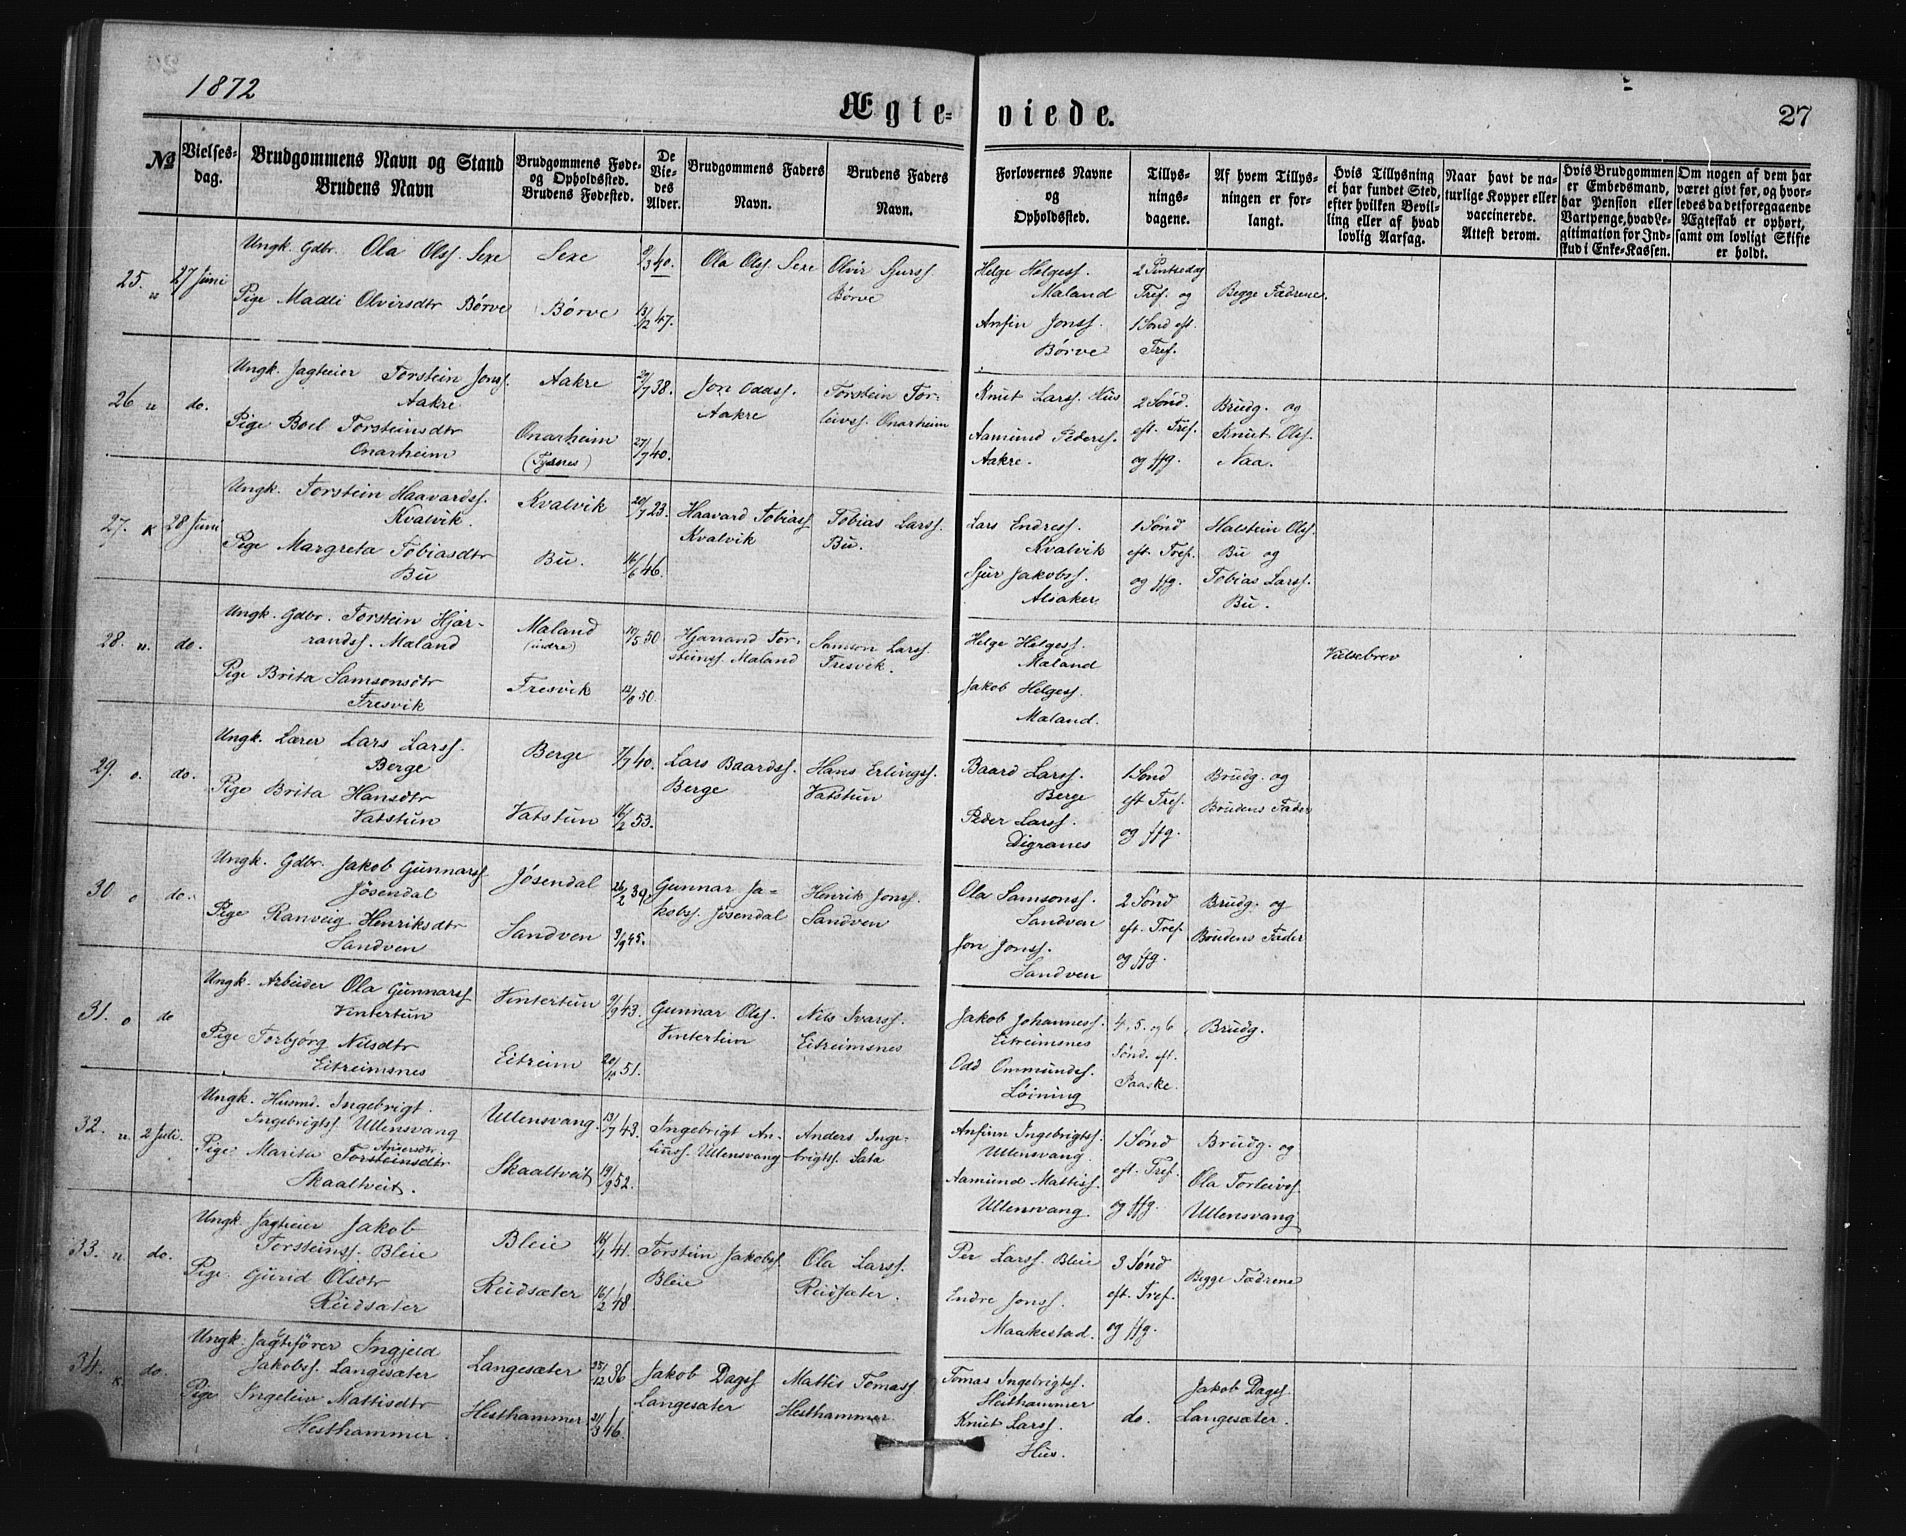 1872
Ægte-
viede.
27
№
Vielses-
dag.
Brudgommens Navn og Stand
Brudens Navn
Brudgommens Føde-
og Opholdssted.
Brudens Fødested.
De
Vie-
des
Alder.
Brudgommens Faders
Navn.
Brudens Faders
Navn.
Forlovernes Navne
og
Opholdssted.
Tillys-
nings-
dagene.
Af hvem Tillys-
ningen er for-
langt.
Hvis Tillysning
ei har fundet Sted,
efter hvilken Bevil-
ling eller af hvad
lovlig Aarsag.
Naar havt de na-
turlige Kopper eller
vaccinerede.
Attest derom.
Hvis Brudgommen
er Embedsmand,
har Pension eller
Vartpenge, hvad Le-
gitimation for Ind-
skud i Enke-Kassen.
Om nogen af dem har
været givt før, og hvor-
ledes da det foregaaende
Ægteskab er ophørt,
samt om lovligt Skifte
er holdt.
25. u 27 Juni
Ungk. Gdbr. Ola Olss. Sexe
Pige Madli Olvirsdtr Børve
Sexe
Børve
8/3 40.
13/12 47.
Ola Olss. Sexe
Olvir Sjurss.
Børve
Helge Helgess.
Maland
Anfin Jonss.
Børve
2 Pintsedag
Tref. og
1 Sønd eft.
Tref.
Begge Fædrene.
26 u do.
Ungk. Jagteier Torstein Jonss.
Aakre
Pige Boel Torsteinsdtr
Onarheim
Aakre
Onarheim
(Tysnes)
29/7 38.
27/7 40.
Jon Oddss.
Aakre
Torstein Tor-
leivss. Onarheim
Knut Larss. Hus
Aamund Pederss.
Aakre.
2 Sønd.
eft. Tref.
og ffg.
Brudg. og
Knut Olss.
Naa.
27. K 28 Juni
Ungk. Torstein Haavardss.
Kvalvik.
Pige Margreta Tobiasdtr
Bu
Kvalvik
Bu.
20/7 23.
16/6 46.
Haavard Tobiass.
Kvalvik
Tobias Larss.
Bu.
Lars Endress.
Kvalvik
Sjur Jakobss.
Alsaker
1 Sønd
eft. Tref.
og ffg.
Halstein Olss.
Bu og
Tobias Larss.
Bu.
28. u. do.
Ungk. Gdbr. Torstein Hjar-
randss. Maland
Pige Brita Samsonsdtr
Tresvik
Maland
(indre)
Tresvik
19/5 50
50.
Hjarrand Tor-
steinss. Maland
Samson Larss.
Tresvik.
Helge Helgess.
Maland
Jakob Helgess.
Maland.
Vielsebrev
29. o. do.
Ungk. Lærer Lars Larss.
Berge
Pige Brita Hansdtr
Vatstun
Berge
Vatstun
7/7 40.
16/2 53.
Lars Baardss.
Berge
Hans Erlingss.
Vatstun
Baard Larss.
Berge
Peder Larss.
Digranes
1 Sønd
eft Tref.
og ffg.
Brudg. og
Brudens Fader
30 o do.
Ungk. Gdbr. Jakob Gunnarss.
Jøsendal
Pige Ranveig Henriksdtr
Sandven
Jøsendal
Sandven
26/2 39.
9/9 45.
Gunnar Ja-
kobss. Jøsendal
Henrik Jonss.
Sandven
Ola Samsonss.
Sandven
Jon Jonss.
Sandven
2 Sønd
eft. Tref.
og ffg.
Brudg. og
Brudens Fader
31. o do
Ungk. Arbeider Ola Gunnarss.
Vintertun
Pige Torbjørg Nilsdtr
Eitreimsnes
Vintertun
Eitreim
9/9 43.
20/10 51.
Gunnar Olss.
Vintertun
Nils Ivarss.
Eitreimsnes
Jakob Johanness.
Eitreimsnes
Odd Ommundss.
Løining
4. 5. og 6
Sønd. eft.
Paaske.
Brudg.
32. u. 2 Juli.
Ungk. Husmd. Ingebrigt
Ingebrigtss. Ullensvang
Andersdtr
Pige Marita Torsteinsdtr
Skaaltveit.
Ullensvang.
Skaaltveit
13/7 43.
19/9 52.
Ingebrigt An-
Ullensvang
Anders Inge-
brigtss. Sata
Anfinn Ingebrigtss.
Ullensvang
Aamund Mattiss.
Ullensvang.
1 Sønd
eft. Tref.
og ffg.
Brudg. og
Ola Torleivss.
Ullensvang
33. u. do.
Ungk. Jagteier Jakob
Torsteinss. Bleie
Pige. Gurid Olsdtr
Rudsæter
Bleie
Rudsæter
41.
16/2 48.
Torstein Jakobss.
Bleie
Ola Larss.
Rudsæter.
Per Larss. Bleie
Endre Jonss.
Maakestad.
3 Sønd
eft. Tref.
og ffg.
Begge Fædrene
34. K. do.
Ungk. Jagtefører Ingjeld
Jakobss. Langesæter
Pige Ingeleiv Mattisdtr
Hesthammer.
Langesæter
Hesthammer
25/12 36
21/3 46.
Jakob Dagss.
Langesæter
Mattis Tomass.
Hesthammer
Tomas Ingebrigtss.
Hesthammer
Knut Larss.
Hus.
do.
Jakob Dagss.
Langesæter.